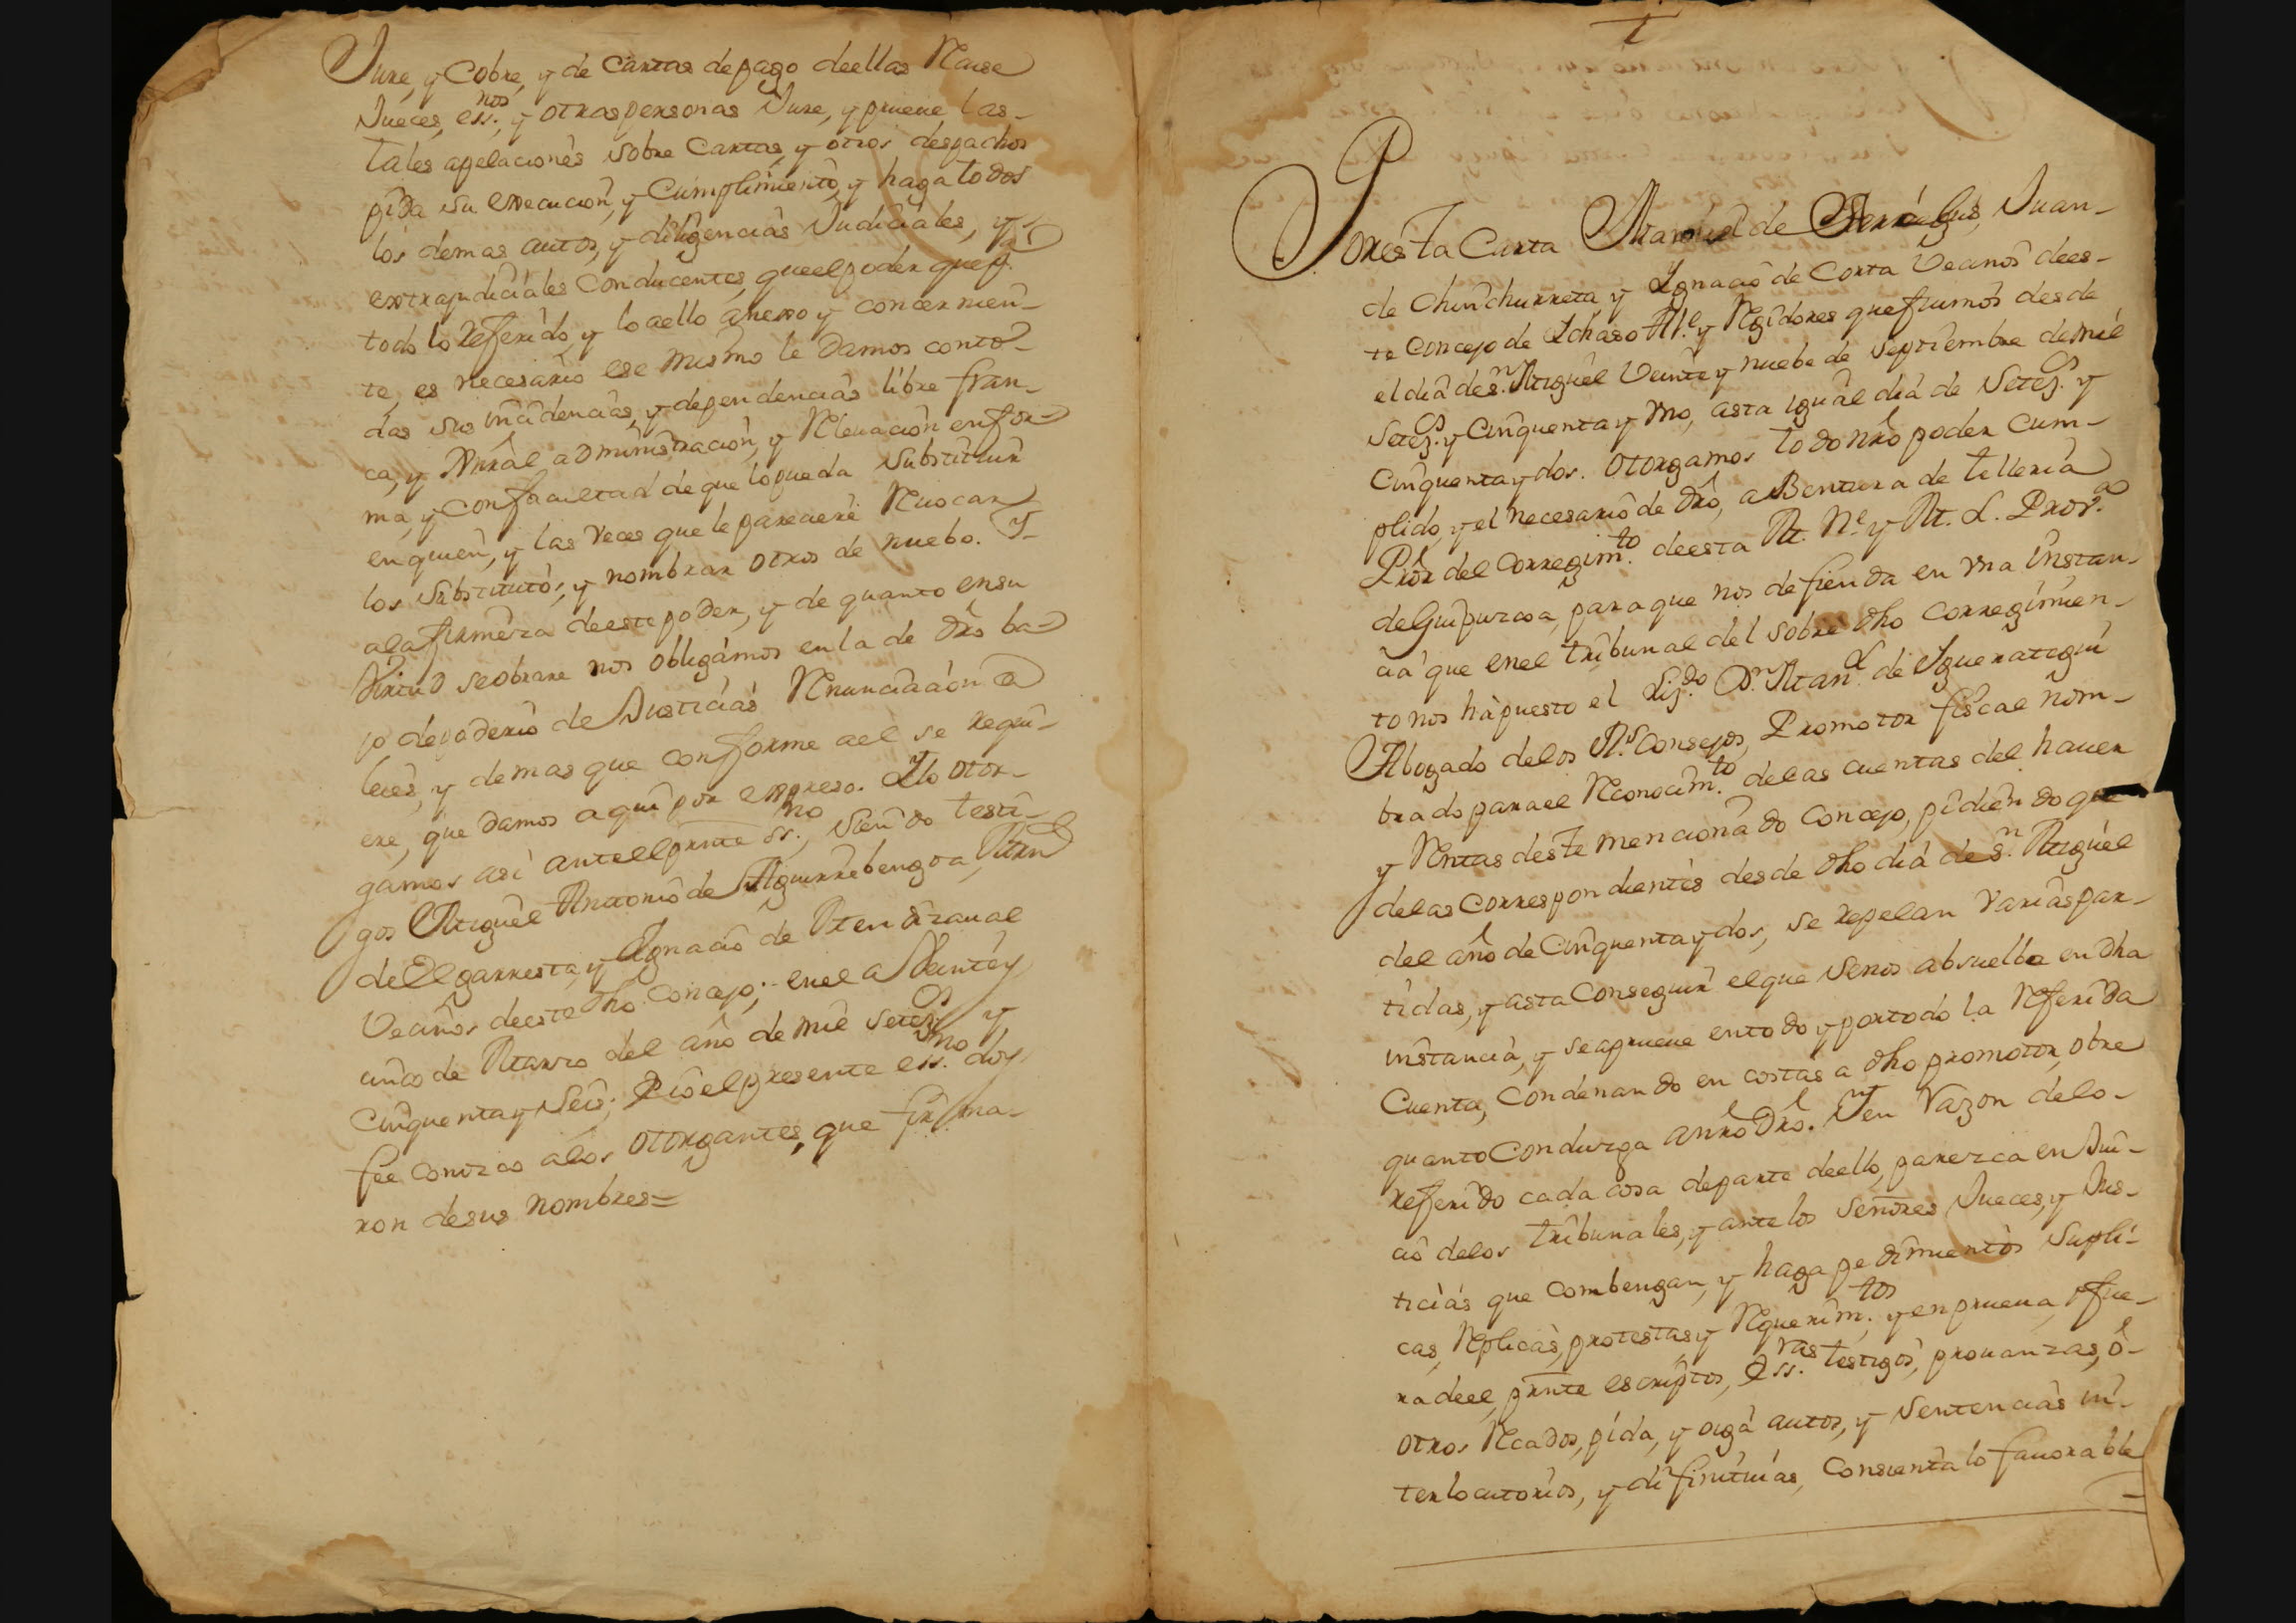 Jure, y Cobre, y de Cartas de pago deellas Recuse
Jueces, ess.nos, y otras personas Jure, y prueue las
tales apelaciones sobre Cartas, y otros despachos
pida su execucion, y Cumplimiento, y haga todos
los demas autos, y diligencias Judiciales, y
extrajudiciales Conducentes, que el poder que p.a
todo lo Referido, y lo aello anexo y concernien-
te, es necesario ese mismo le Damos con to-
das sus incidencias, y dependencias libre fran-
ca, y Gnrâl administracion, y Releuacion en for-
ma, y con facultad de que lo pueda Substituir
en quien, y las veces que le pareciere Reuocar
los Substitutos, y nombrar otros de nuebo. Y
ala firmeza deeste poder, y de quanto en su
Virtud se obrare nos obligamos en la de Dro ba-
jo de poderio de Justicias Renunciacion de
leies, y demas que conforme ael se requi-
ere, que Damos aqui por expreso. Y lo otor-
gamos asi ante el prnte ss.no, siendo testi-
gos Miguel Antonio de Aguirrebengoa, Mrn
de Elgarresta, y Ygnacio de Mendizaual
Vecinos deeste dho Concejo; en el a Veinte y
cinco de Marzo del año de mil setez.os y
Cinquenta y Seis; E io el presente ess.no doy
fee conozco alos otorgantes, que firma-
ron de sus nombres=
Por esta Carta Manuel de Juan
de Chinchurreta y Ygnacio de Corta Vecinos dees-
te Concejo de Ychaso Al.e y Regidores que fuimos desde
el dia de S.n Miguel Veinte y nuebe de Septiembre de mil
Setez.os y Cinquenta y Vno, asta igual dia de Setez.os y
Cinquenta y dos. Otorgamos todo nro poder Cum-
plido, y el necesario de Dro, a Bentura de Telleria
Pror del Corregim.to deesta M. N.e y M. L. Prov.a
de Guipuzcoa, para que nos defienda en Vna Instan-
cia que en el tribunal del sobre dho Corregimien-
to nos hà puesto el Liz.do D.n Man.l de Yguerategui
Abogado de los R.s Consejos, Promotor fiscal nom-
brado para el Reconocim.to de las cuentas del hauer
y Rentas deste mencionado Concejo, pidiendo que
delas Correspondientes desde dho dia de S.n Miguel
del año de Cinquenta y dos, se repelan Varias par-
tidas, y asta Conseguir el que se nos absuelba en dha
instancia, y se aprueue en todo y por todo la Referida
Cuenta, Condenando en costas a dho promotor, obre
quanto Conduzga anro Dro. Y en Razon delo-
referido cada cosa departe deello, parezca en Jui-
cio delos tribunales, y ante los Señores Jueces, y Jus-
ticias que Combengan, y haga pedimientos Supli-
cas, Replicas, protestas, y Requerim.tos, y en prueua, y fue-
ra deel, prnte escriptos, Ess.ras testigos, prouanzas, ô
otros Recados, pida, y oiga autos, y Sentencias in-
terlocutorios, y difinitiuas, Consienta lo fauorable